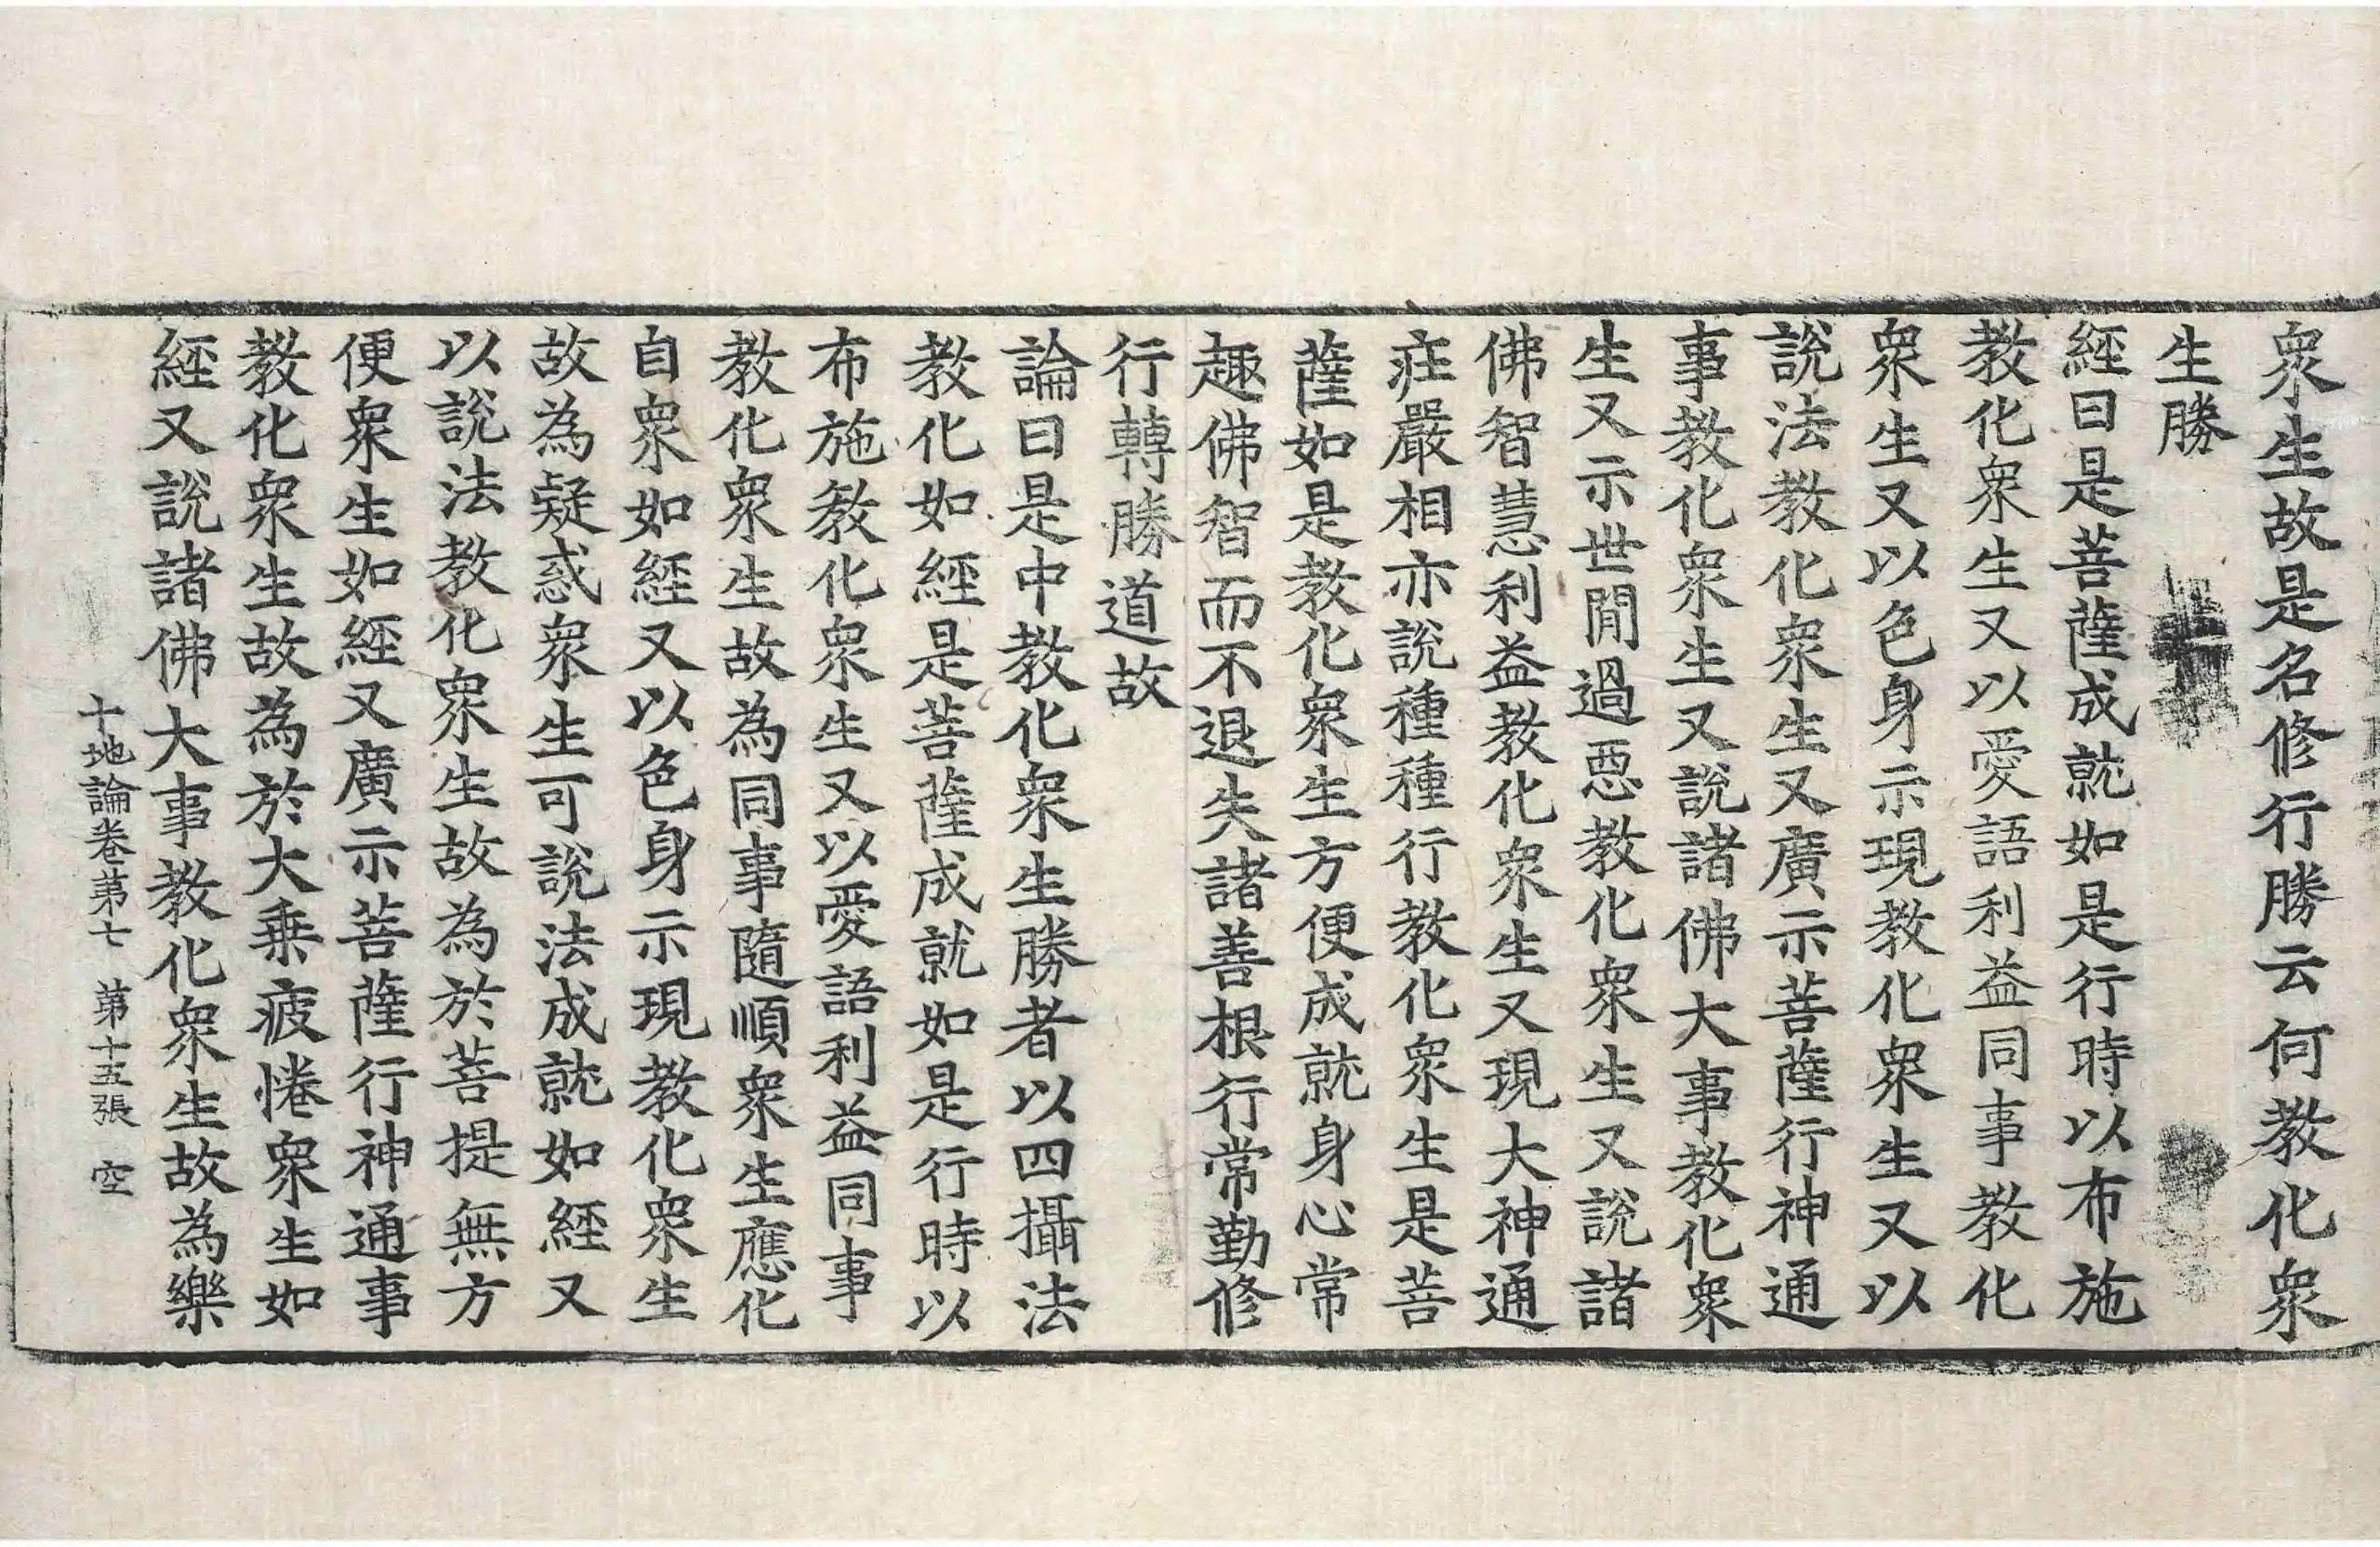 衆生故是名修行勝云何教化衆
生勝
經曰是菩薩成就如是行時以布施
教化衆生又以愛語利益同事教化
衆生又以色身示現教化衆生又以
說法教化衆生又廣示菩薩行神通
事教化衆生又說諸佛大事教化衆
生又示世間過惡教化衆生又說諸
佛智慧利益教化衆生又現大神通
莊嚴相亦說種種行教化衆生是菩
薩如是教化衆生方便成就身心常
趣佛智而不退失諸善根行常勤修
行轉勝道故
論曰是中教化衆生勝者以四攝法
教化如經是菩薩成就如是行時以
布施教化衆生又以愛語利益同事
教化衆生故為同事隨順衆生應化
自衆如經又以色身示現教化衆生
故為疑惑衆生可說法成就如經又
以說法教化衆生故為於菩提無方
便衆生如經又廣示菩薩行神通事
教化衆生故為於大乗疲惓衆生如
經又說諸佛大事教化衆生故為樂
十地論卷第七 第十五張 空